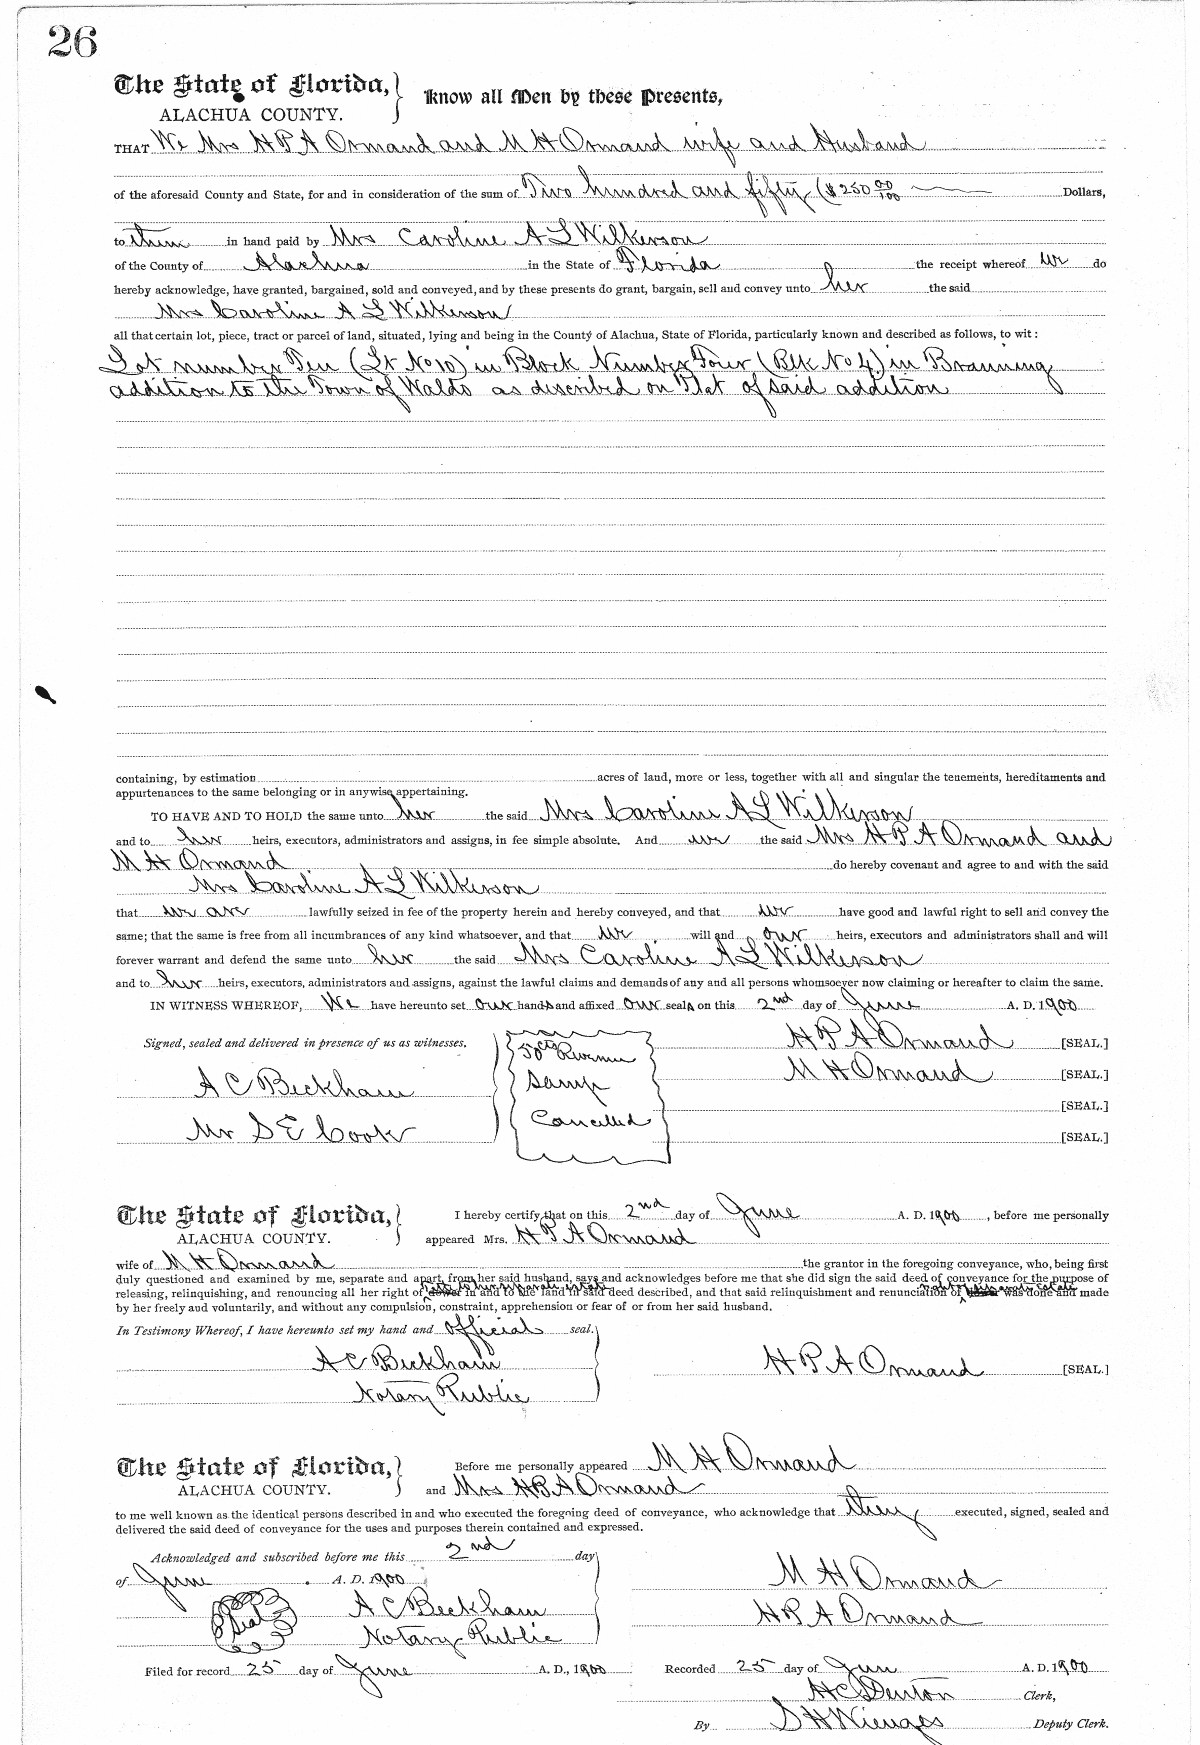 26
The State of Florida, Know all Men by these Presents,
ALACHUA COUNTY.
THAT We Mrs H P A Ormand and M H Ormand wife and Husband
of the aforesaid County and State, for and in consideration of the sum of Two hundred and fifty ($250 00/100 Dollars,
to them in hand paid by Mrs Caroline A L Wilkerson
of the County of Alachua in the State of Florida the receipt whereof we do
hereby acknowledge, have granted, bargained, sold and conveyed, and by these presents do grant, bargain, sell and convey unto her the said
Mrs Caroline A L Wilkerson
all that certain lot, piece, tract or parcel of land, situated, lying and being in the County of Alachua, State of Florida, particularly known and described as follows, to wit:
Lot number Ten (Lt No 10) in Block Number Four (Blk No 4) in Brauning
addition to the Town of Waldo as discribed on Plat of said addition
containing, by estimation acres of land, more or less, together with all and singular the tenements, hereditaments and
appurtenances to the same belonging or in anywise appertaining.
TO HAVE AND TO HOLD the same unto her the said Mrs Caroline A L Wilkerson
and to her heirs, executors, administrators and assigns, in fee simple absolute. And we the said Mrs H P A Ormand and
M H Ormand do hereby covenant and agree to and with the said
Mrs Caroline A L Wilkerson
that we are lawfully seized in fee of the property herein and hereby conveyed, and that we have good and lawful right to sell and convey the
same; that the same is free from all incumbrances of any kind whatsoever, and that we will and our heirs, executors and administrators shall and will
forever warrant and defend the same unto her the said Mrs Caroline A L Wilkerson
and to her heirs, executors, administrators and assigns, against the lawful claims and demands of any and all persons whomsoever now claiming or hereafter to claim the same.
IN WITNESS WHEREOF, We have hereunto set our hands and affixed our seals on this 2nd day of June A. D. 1900
H P A Ormand [SEAL.]
Signed, sealed and delivered in presence of us as witnesses. 50cts Revenue
M H Ormand [SEAL.]
A C Beckham Samp
[SEAL.]
Mr S E Cook Cancelled
[SEAL.]
The State of Florida, I hereby certify that on this 2nd day of June A. D. 1900, before me personally
ALACHUA COUNTY. appeared Mrs. H P A Ormand
wife of M H Ormand the grantor in the foregoing conveyance, who, being first
duly questioned and examined by me, separate and apart, from her said husband, says and acknowledges before me that she did sign the said deed of conveyance for the purpose of
releasing, relinquishing, and renouncing all her right of in and to the land in said deed described, and that said relinquishment and renunciation of was done and made
by her freely aud voluntarily, and without any compulsion, constraint, apprehension or fear of or from her said husband.
In Testimony Whereof, I have hereunto set my hand and official seal.
A C Beckham H P A Ormand [SEAL.]
Notary Public
The State of Florida, Before me personally appeared M H Ormand
ALACHUA COUNTY. and Mrs H P A Ormand
to me well known as the identical persons described in and who executed the foregoing deed of conveyance, who acknowledge that they executed, signed, sealed and
delivered the said deed of conveyance for the uses and purposes therein contained and expressed.
Acknowledged and subscribed before me this 2nd day
of June A. D. 1900 M H Ormand
Seal A C Beckham H P A Ormand
Notary Public
Filed for record 25 day of June A. D., 1900 Recorded 25 day of Jun A. D. 1900
H C Denton Clerk,
By S H Wienges Deputy Clerk.